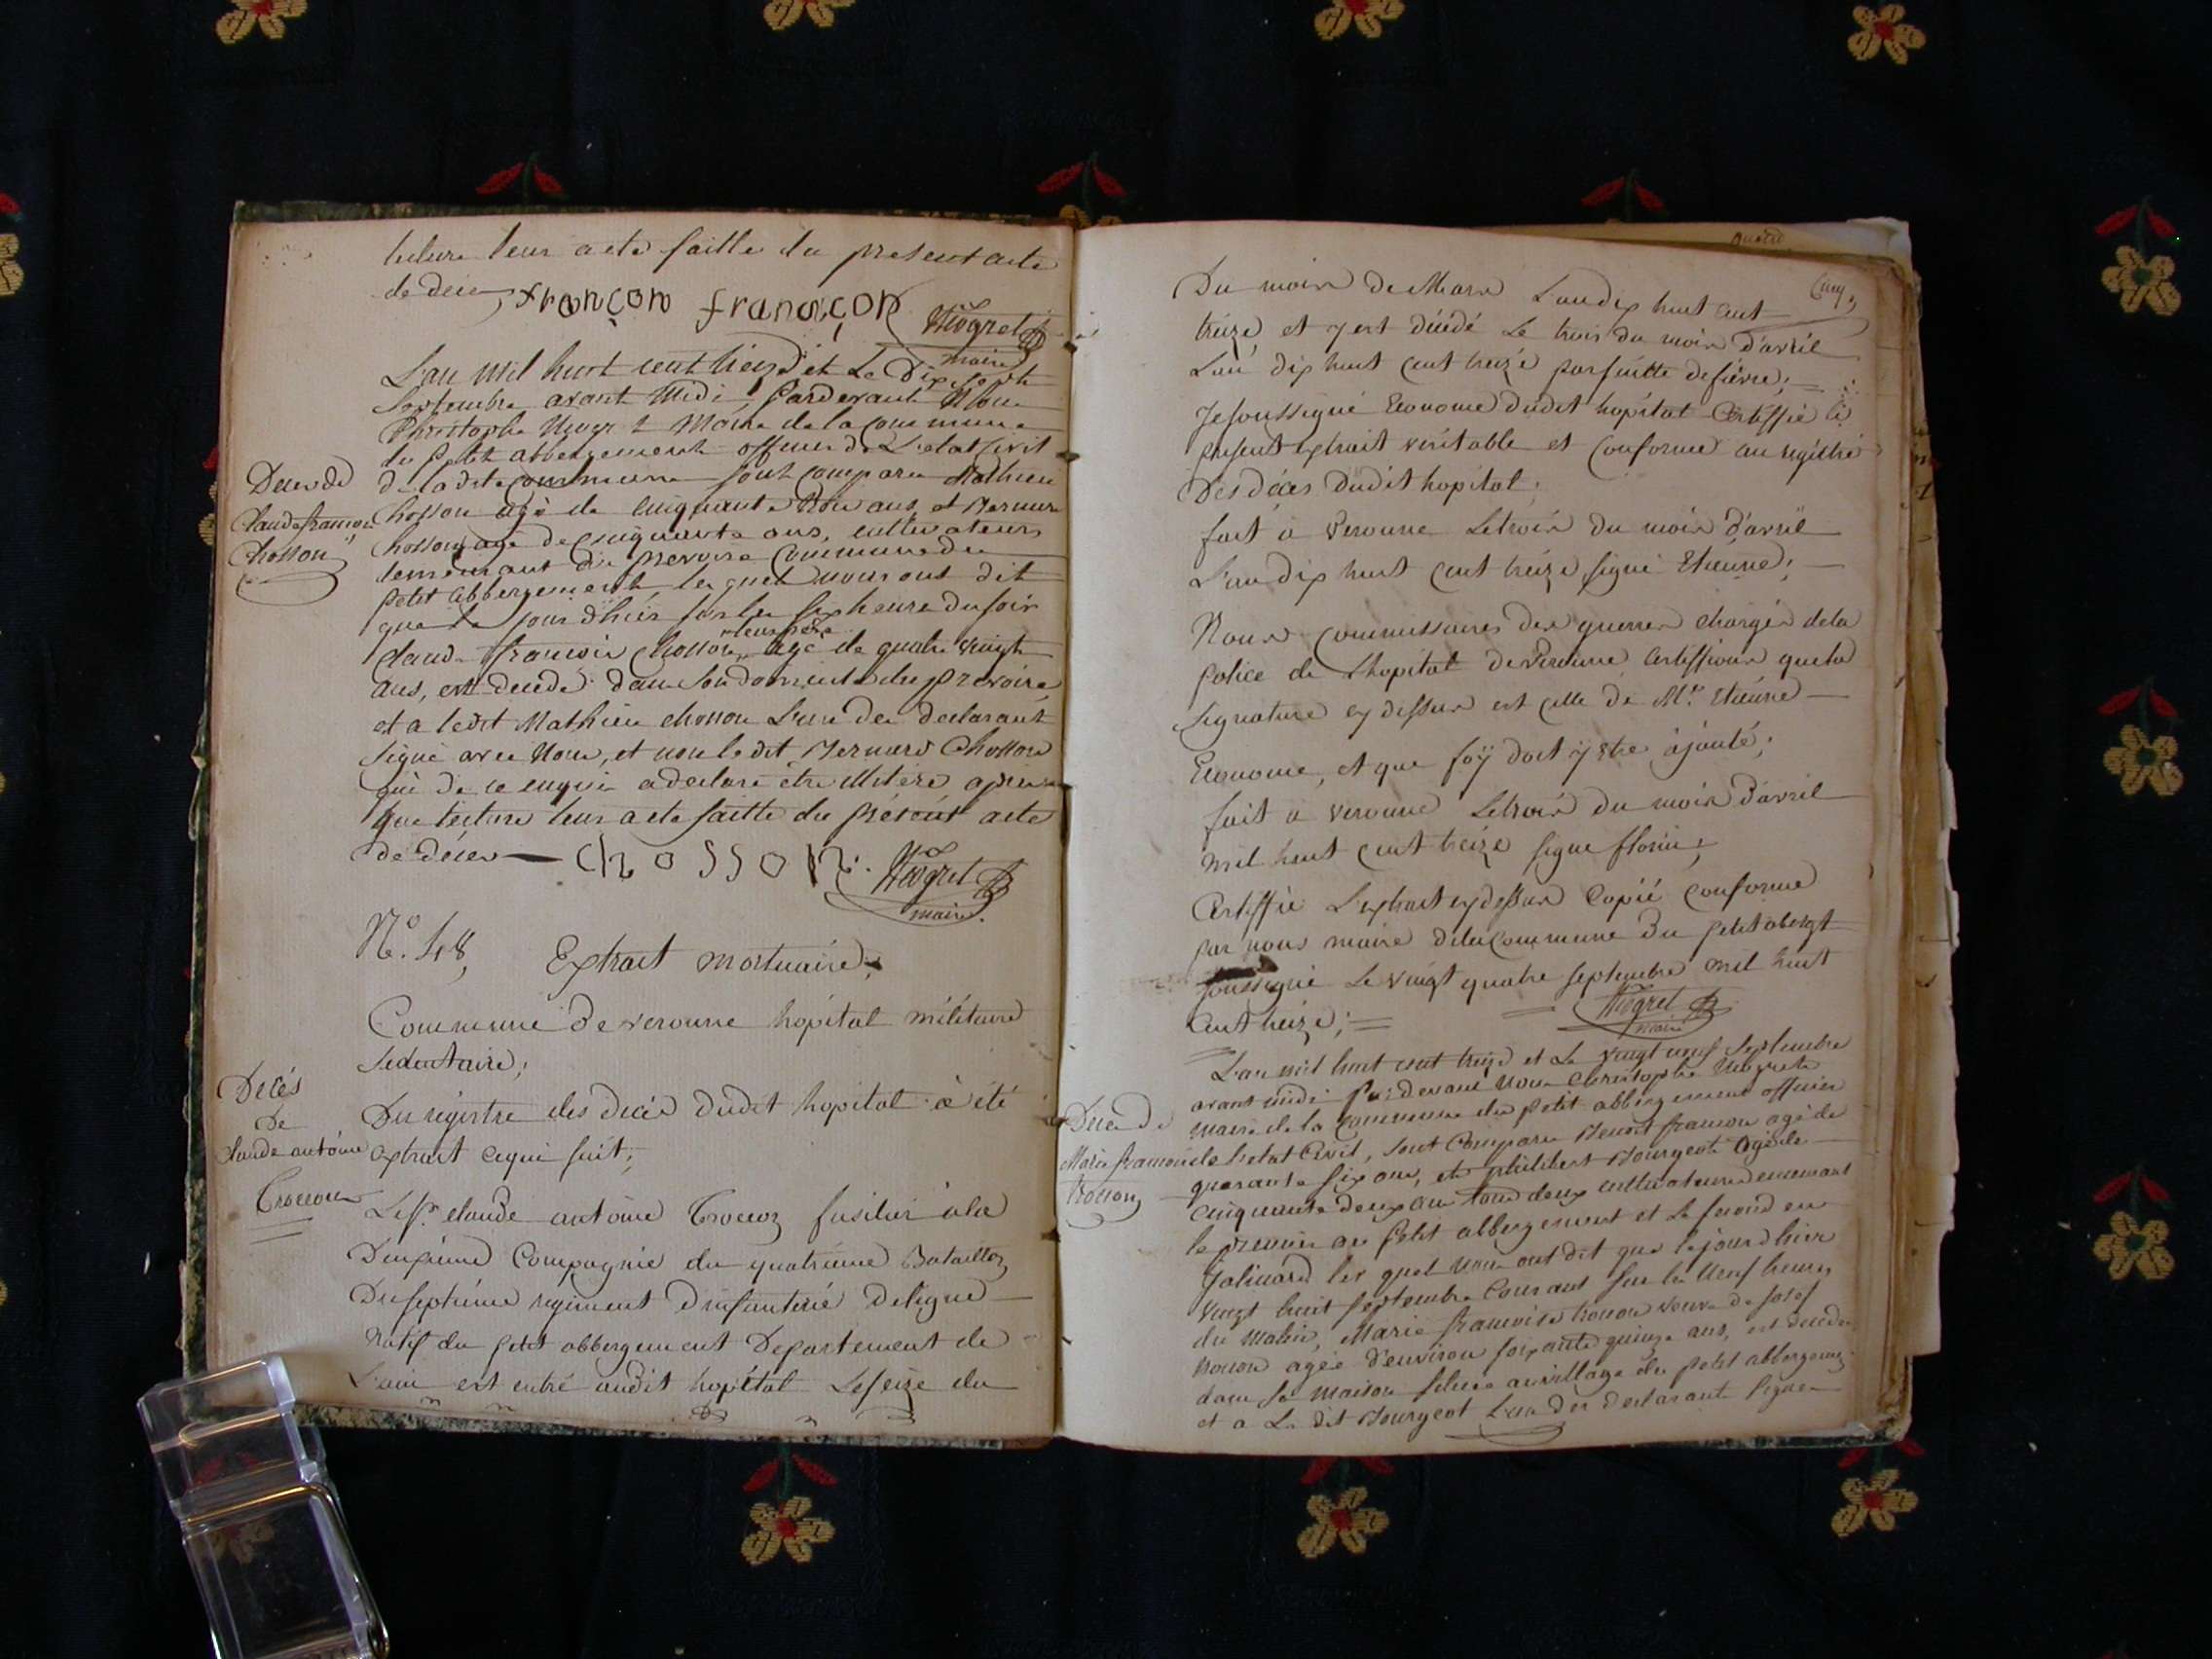 lecture leur a eté faitte du present acte
de décès françon françon Niogret
maire
L'an mil huit cent treize et Le Dix sept
Septembre avant Midi, Pardevant Nous
Christophe Niogret Maire de la commune
du petit abbergement officier de L'etat Civil
Deces de
Claude françois
Chosson
de la dite commune sont comparu Mathieu
chosson agé de cinquante trois ans, et Bernard
chosson agé de cinquante ans, cultivateurs
demeurant du prevoire Commune du
petit abbergement, les quel nous ont dit
que le jour d'hier sur les six heure du soir
Claude françois chosson, leur père agé de quatre vingt
ans, est decedé dans son domicile du prevoire
et a ledit Mathieu chosson L'un des declarant
signé avec Nous, et non le dit Bernard Chosson
qui de ce enquis a declaré être illitéré après
que lecture leur a eté faitte du présent acte
de décès — chosson Niogret
maire.
N°. 48, Extrait mortuaire;
Commune de veronne hôpital militaire
Sedentaire;
Decés
De
Claude antoine
Croccon
Du régistre des decès dudit hopital à été
extrait cequi suit;
Le Sr. claude antoine Croccoz fusilier à la
Deuxieme Compagnie du quatrieme Bataillon
Du septieme regiment d'infanterie de ligne
natif du petit abbergement Departement de
L'ain est entré audit hopital Le seize du
Du mois de Mars L'an dix huit cent
treize, et y est décédé Le trois du mois d'avril
L'an dix huit cent treize par suitte de fièvre;
Je soussigné Econome dudit hopital Certiffié le
présent extrait véritable et conforme au régistre
Des décès dudit hopital;
fait à veronne Le trois du mois d'avril
L'an dix huit cent treize signé Etienne;
Nous commissaires des guerres chargés de la
police de L'hopital de veronne certiffions que la
signature cy dessus est celle de Mr. Etienne
Econome, et que foÿ doit ÿ Etre ajouté;
fait a veronne Le trois du mois d'avril
mil huit cent treize signé florin;
Certiffié L'extrait cy dessus Copié conforme
par nous maire de la Commune Du petit abergt
soussigné Le vingt quatre septembre mil huit
cent treize; Niogret
maire
L'an mil huit cent treize et Le vingt neuf Septembre
avant midi Pardevant Nous Christophe Niogret
Deces de
Marie francoise
maire de la Commune du petit abbergement officier
de L'etat Civil, sont Comparu Benoit françon agé de
quarante six ans, et philibert Bourgeot agé de
cinquante deux ans tous deux cultivateurs demeurant
le premier au petit abbergement et Le second en
Jalinard les quel Nous ont dit que le jour d'hier
vingt huit septembre Courant sur les Neuf heures
du matin, Marie francoise veuve de Josef
agée d'environ soixante quinze ans, est decedée
dans sa maison située au village du petit abbergement
et a Le dit Bourgeot L'un des declarant signé